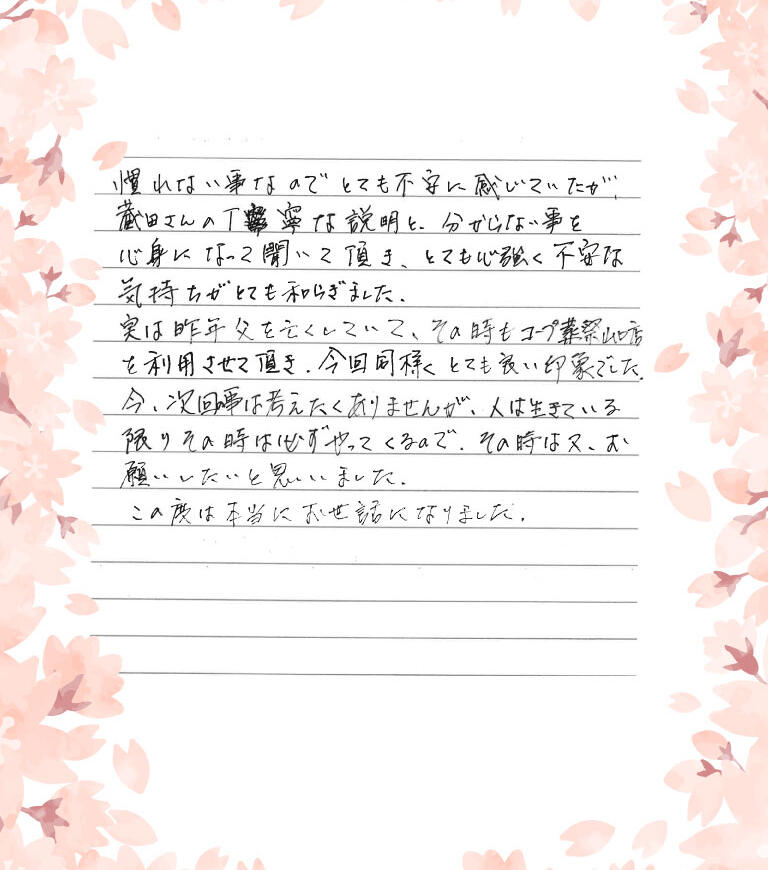 慣れない事なのでとても不安に感じていたが、
蔵田さんの丁寧な説明と、分からない事を
心身になって聞いて頂き、とても心強く不安な
気持ちがとても和らぎました。
実は昨年父を亡くしていて、その時もコープ葬祭山口店
を利用させて頂き、今回同様とても良い印象でした。
今、次回の事は考えたくありませんが、人は生きている
限りその時は必ずやってくるので、その時は又、お
願いしたいと思いいました。
この度は本当にお世話になりました。